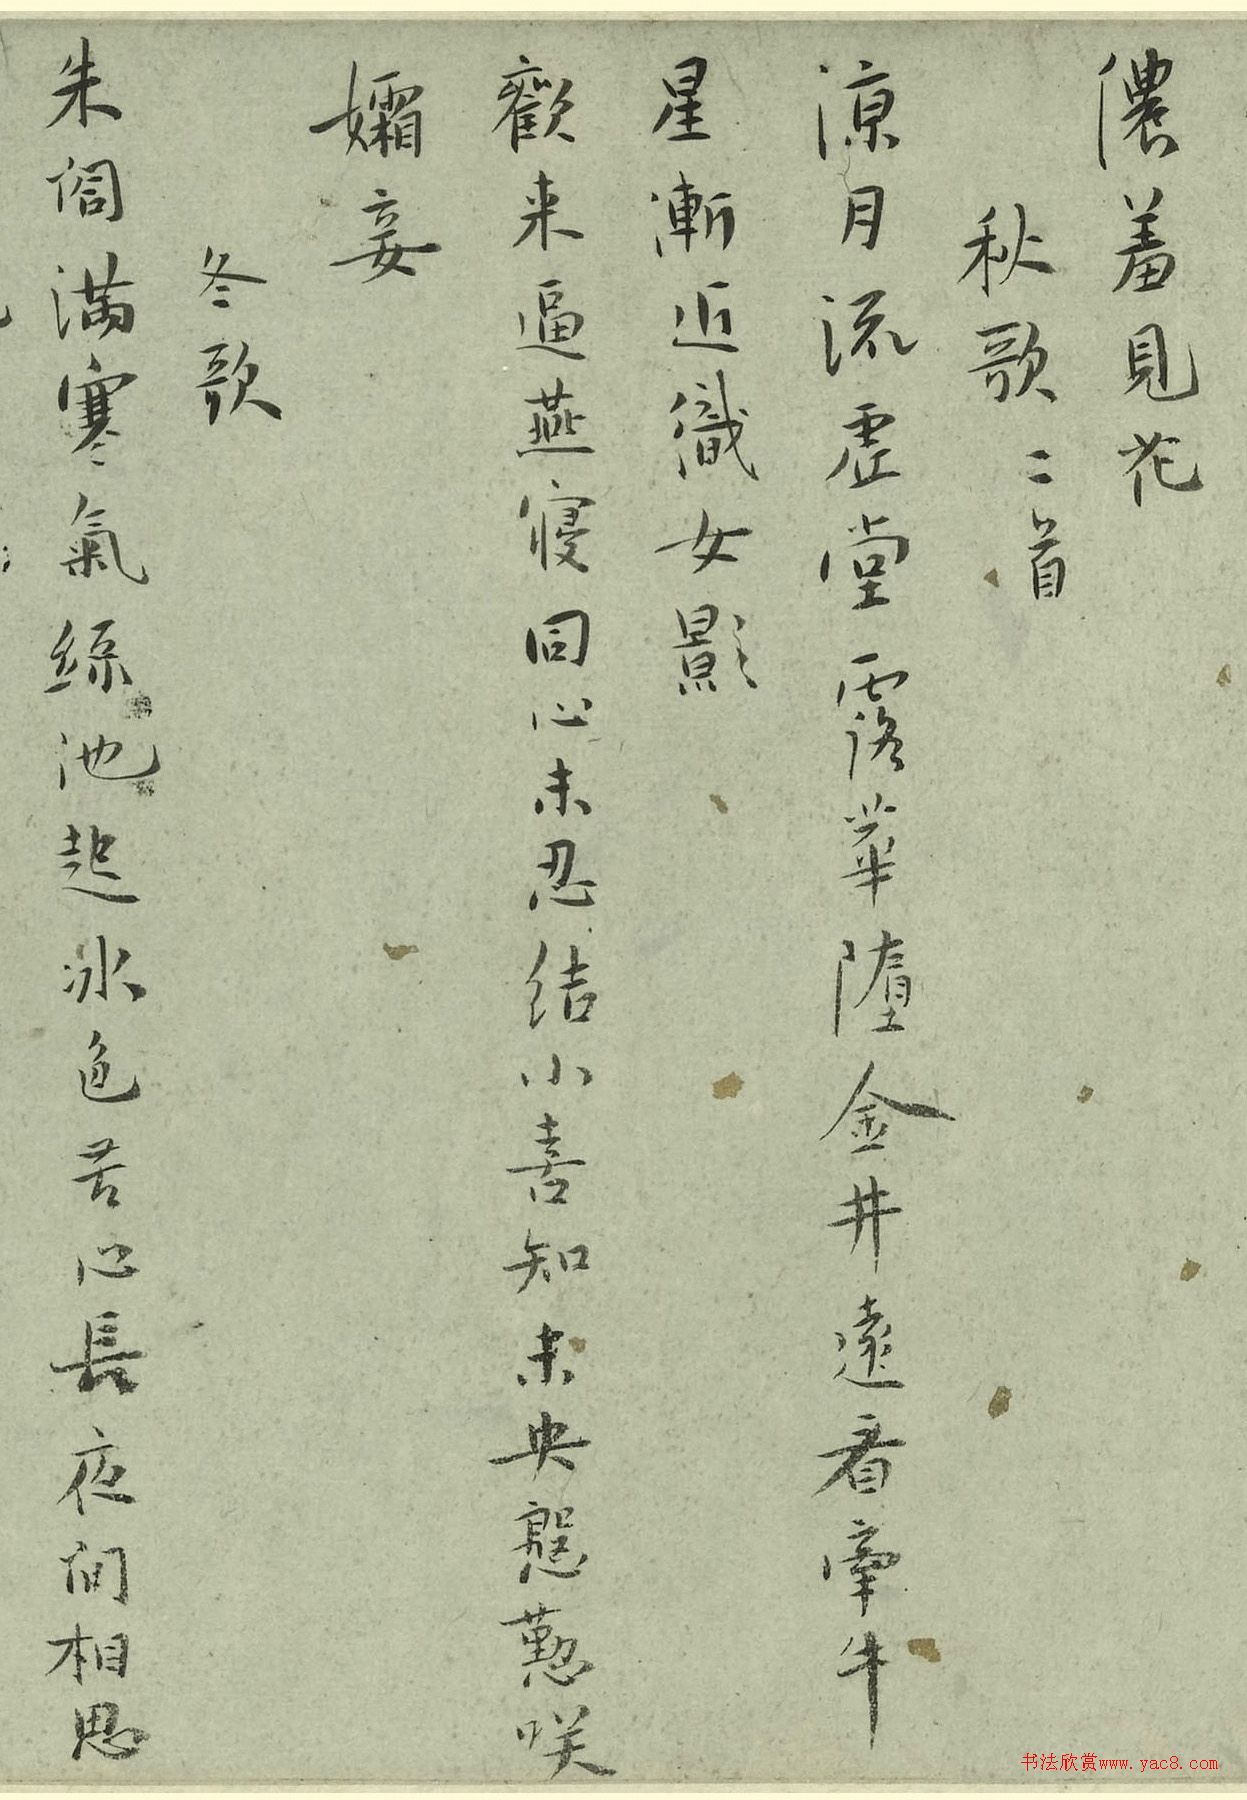 儂羞見花
秋歌二首
涼月流虛堂露華墮金井遠看牽牛
星漸近織女影
歡来逼燕寝同心未忍結小喜知未央慇懃咲
孀妾
冬歌
朱閣满寒氣綠池起冰色苦心長夜間相思
书法欣赏www.yac8.com